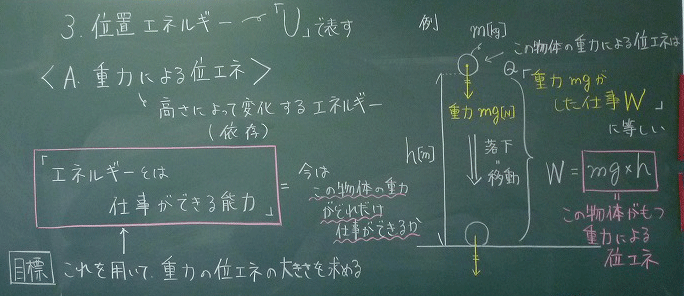 3. 位置エネルギー ～「U」で表す
< A. 重力による位エネ >
高さによって変化するエネルギー
(依存)
「エネルギーとは
仕事ができる能力」
= 今は
この物体の重力
がどれだけ
仕事ができるか
目標 これを用いて、重力の位エネの大きさを求める
例
m[kg]
この物体の重力による位エネは
「重力mgが
した仕事W」
に等しい
重力mg[N]
h[m]
落下
=
移動
W = mg×h
=
この物体がもつ
重力による
位エネ